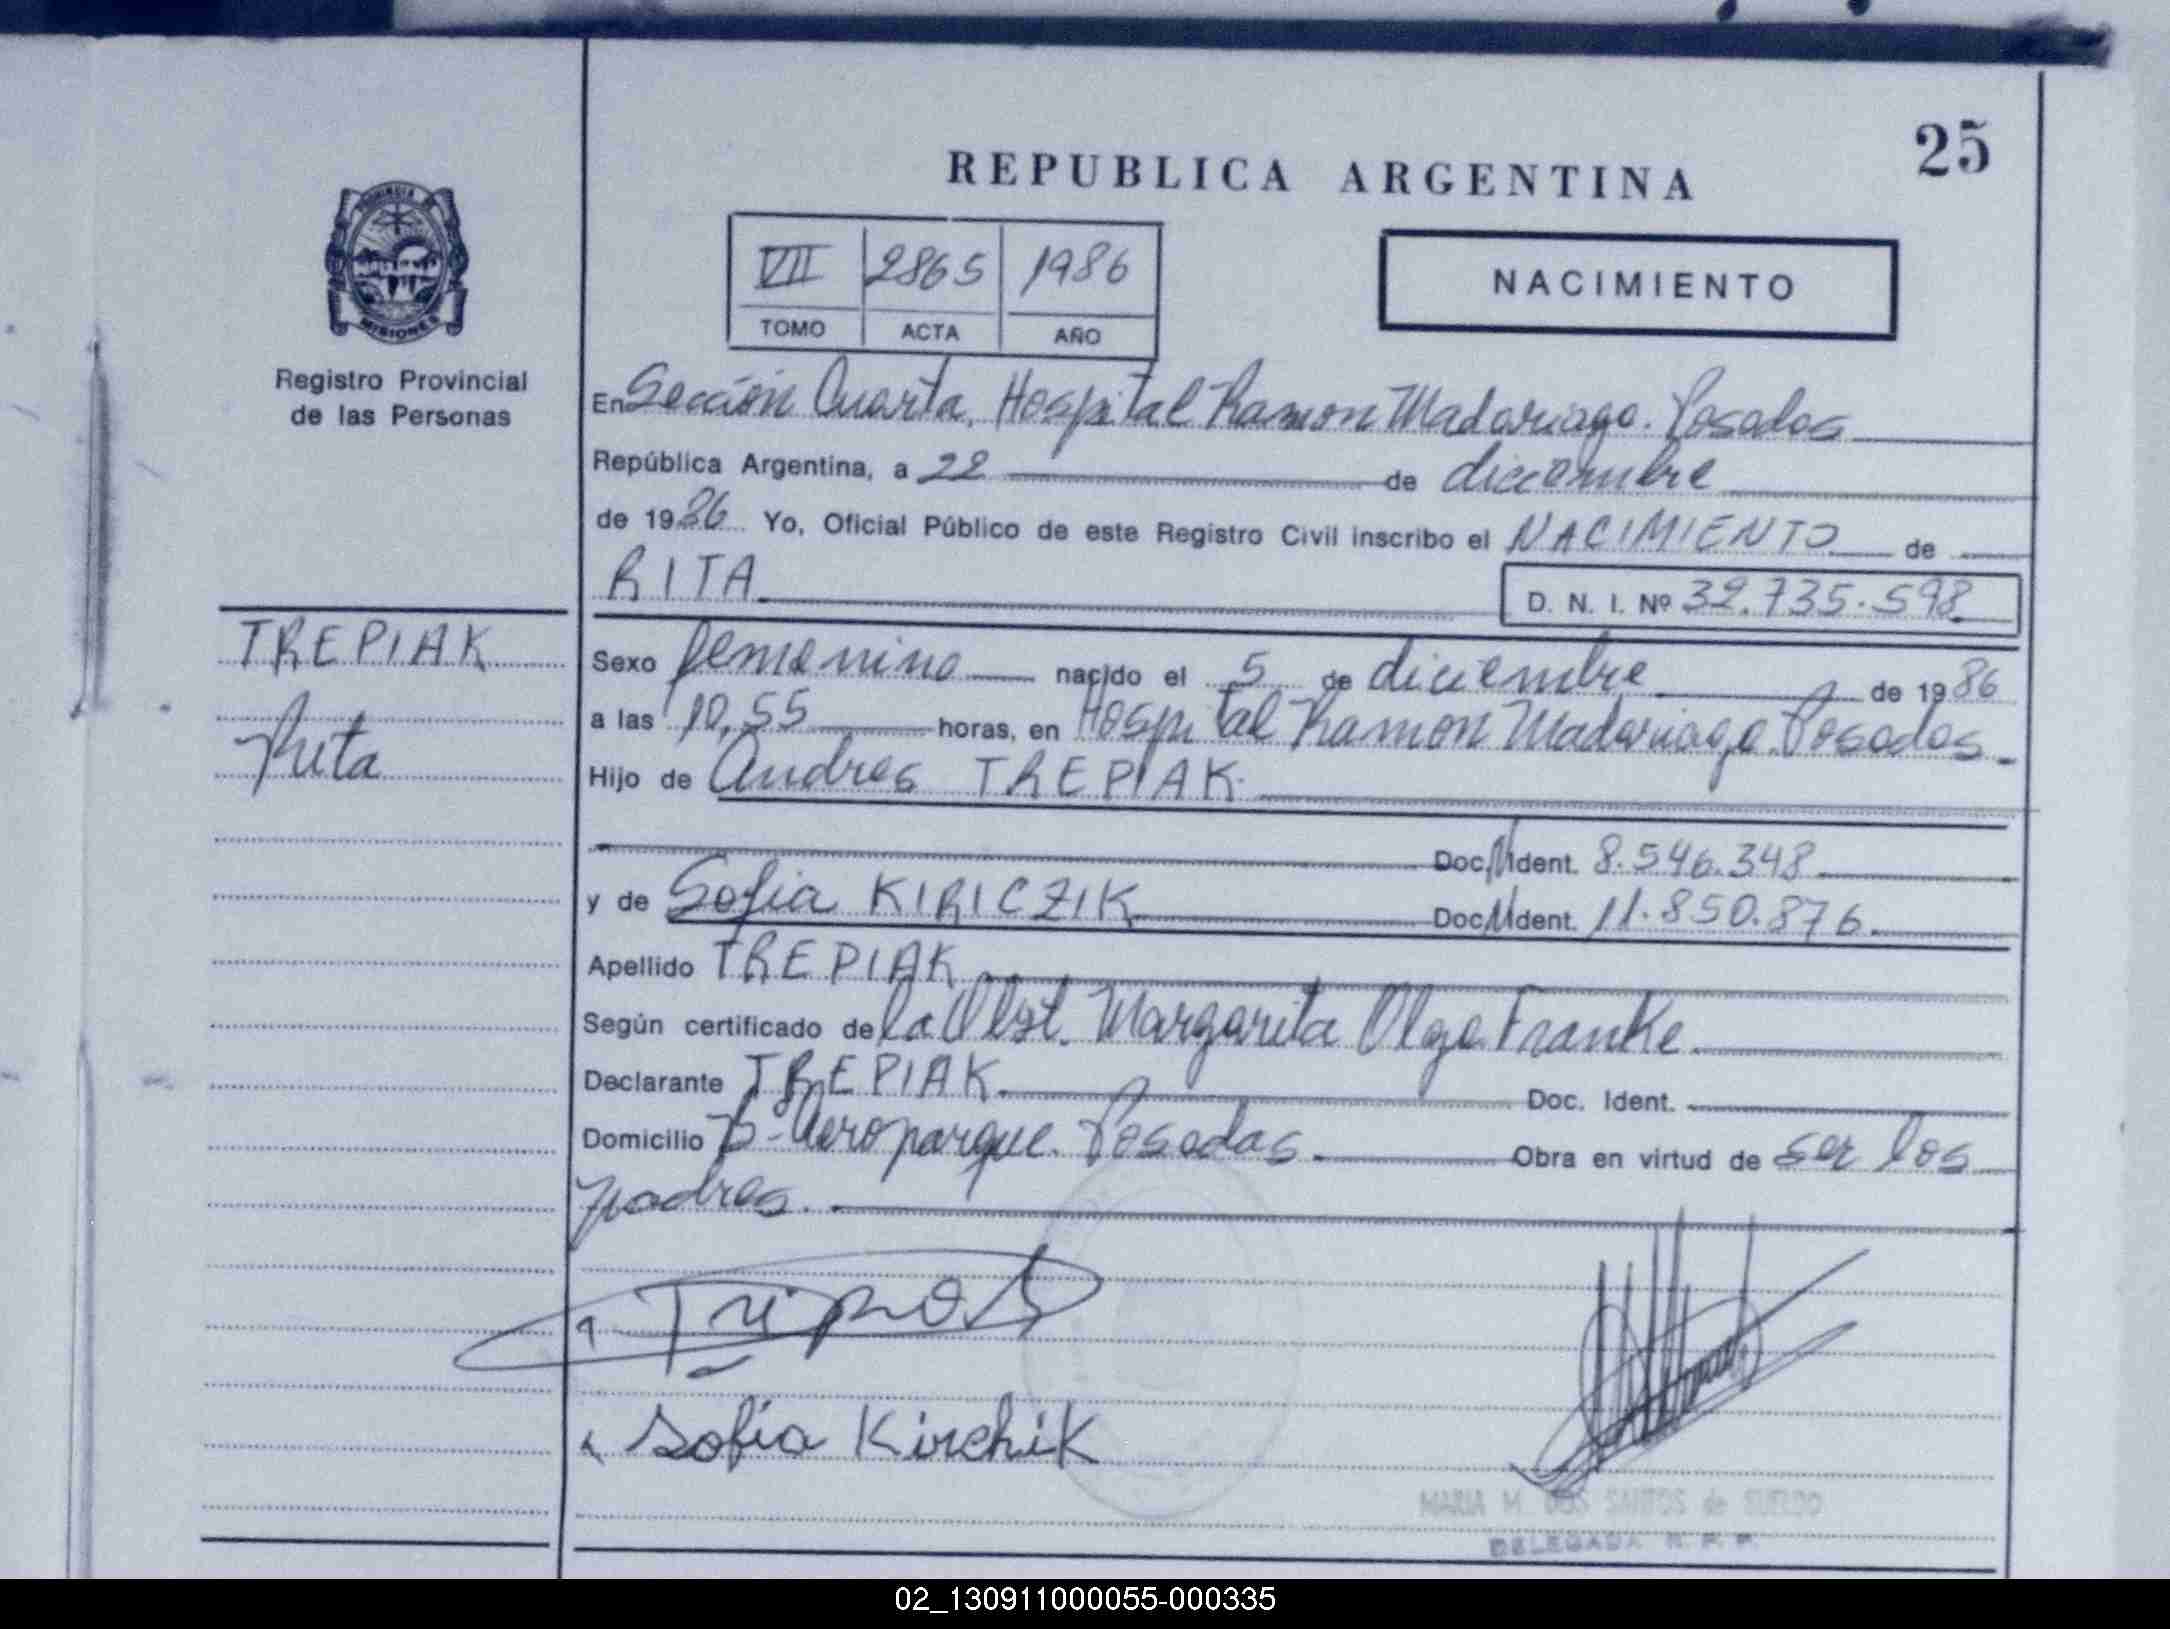 25
REPUBLICA ARGENTINA
VII 2865 1986
TOMO ACTA AÑO
NACIMIENTO
MISIONES
Registro Provincial
de las Personas
En Sección Cuarta, Hospital Ramon Madariaga. Posadas
República Argentina, a 22 de diciembre
de 1986 Yo, Oficial Público de este Registro Civil inscribo el NACIMIENTO de
RITA D. N. I. Nº 32.735.598
TREPIAK
Rita
Sexo femenino nacido el 5 de diciembre de 1986
a las 10,55 horas, en Hospital Ramon Madariaga. Posadas
Hijo de Andres TREPIAK
Doc. Ident. 8.546.348
y de Sofia KIRICZIK Doc. Ident. 11.850.876
Apellido TREPIAK
Según certificado de la Obst. Margarita Olga Franke
Declarante TREPIAK Doc. Ident.
Domicilio B- Aeroparque. Posadas Obra en virtud de ser los
padres.
Sofia Kirchik
MARIA M. DOS SANTOS de SUELDO
DELEGADA R. P. P.
02_130911000055-000335